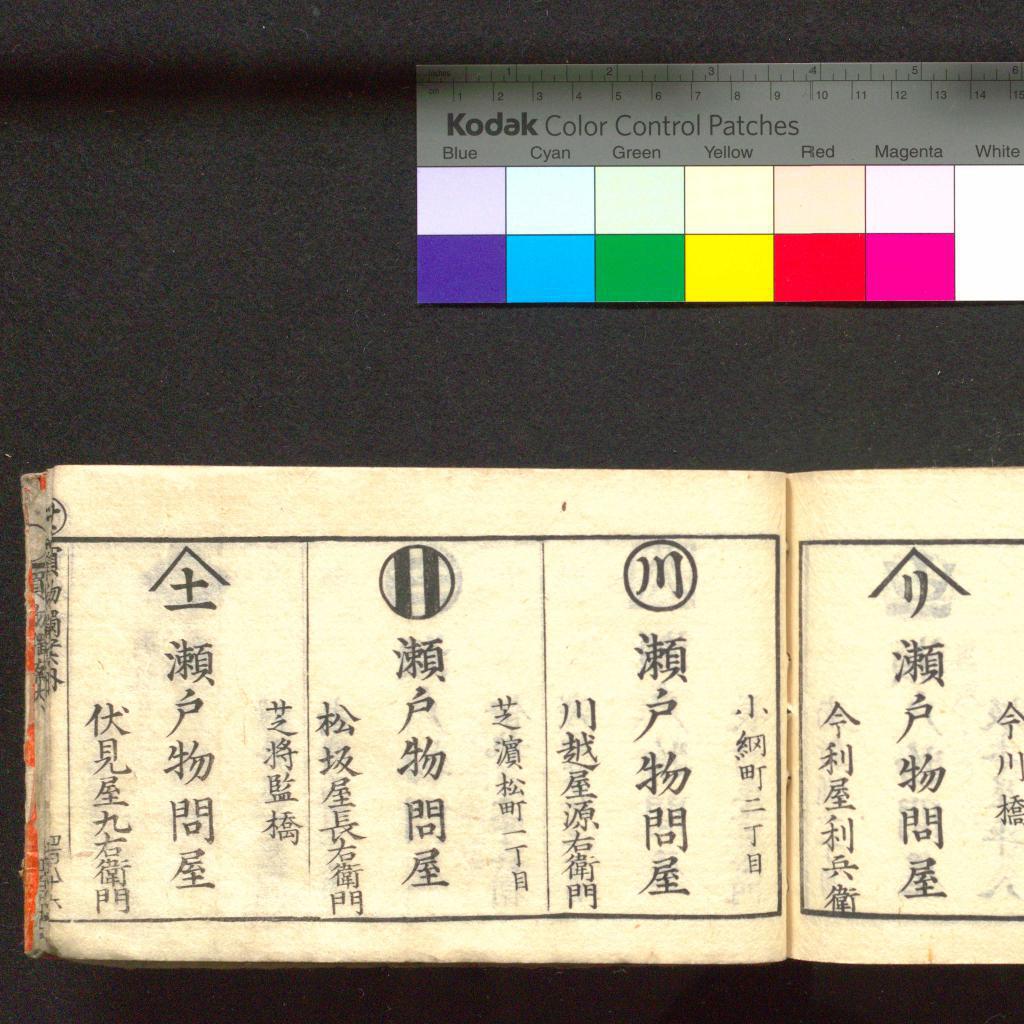 Inches 1 2 3 4 5 6
cm 1 2 3 4 5 6 7 8 9 10 11 12 13 14 15
Kodak Color Control Patches
Blue Cyan Green Yellow Red Magenta White
今川橋
リ
瀬戸物問屋
今利屋利兵衛
小網町二丁目
川
瀬戸物問屋
川越屋源右衛門
芝濱松町一丁目
瀬戸物問屋
松坂屋長右衛門
芝将監橋
土
瀬戸物問屋
伏見屋九右衛門